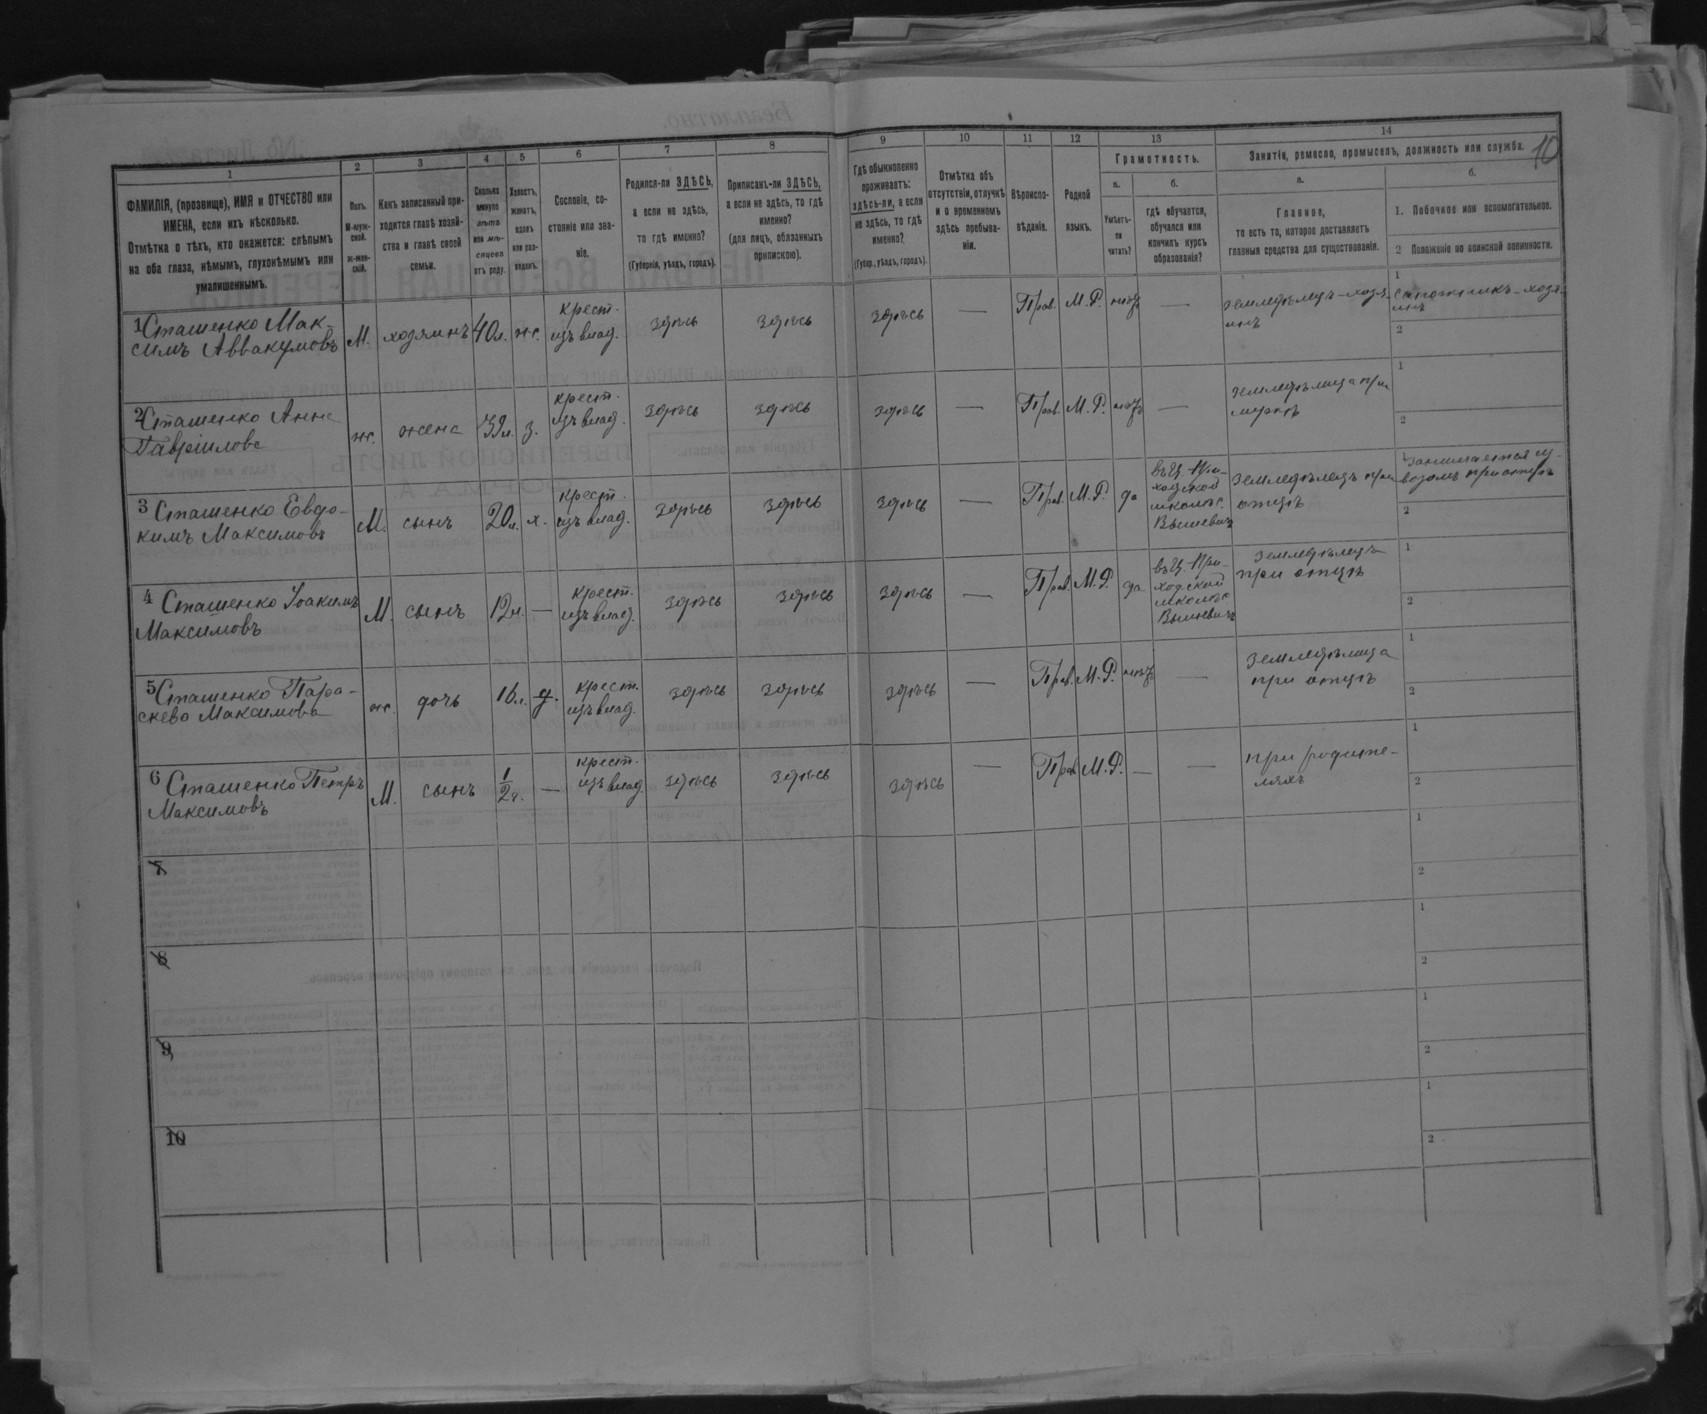 1
2
3
4
5
6
7
8
9
10
11
12
13
14
10
ФАМИЛІЯ, (прозвище), ИМЯ и ОТЧЕСТВО или
ИМЕНА, если ихъ нѣсколько.
Отмѣтка о тѣхъ, кто окажется: слѣпымъ
на оба глаза, нѣмымъ, глухонѣмымъ или
умалишеннымъ.
Полъ.
М-муж-
ской.
ж-жен-
скій.
Какъ записанный при-
ходится главѣ хозяй-
ства и главѣ своей
семьи.
Сколько
минуло
лѣтъ
или мѣ-
сяцевъ
отъ роду.
Холостъ,
женатъ,
вдовъ
или раз-
веденъ.
Сословіе, со-
стояніе или зва-
ніе.
Родился-ли ЗДѢСЬ,
а если не здѣсь,
то гдѣ именно?
(Губернія, уѣздъ, городъ).
Приписанъ-ли ЗДѢСЬ,
а если не здѣсь, то гдѣ
именно?
(для лицъ, обязанныхъ
припискою).
Гдѣ обыкновенно
проживаетъ:
здѣсь-ли, а если
не здѣсь, то гдѣ
именно?
(Губер., уѣздъ, городъ).
Отмѣтка объ
отсутствіи, отлучкѣ
и о временномъ
здѣсь пребыва-
ніи.
Вѣроиспо-
вѣданіе.
Родной
языкъ.
Грамотность.
а.
б.
Умѣетъ-
ли
читать?
гдѣ обучается,
обучался или
кончилъ курсъ
образованія?
Занятія, ремесло, промыселъ, должность или служба.
а.
б.
Главное,
то есть то, которое доставляетъ
главныя средства для существованія.
1. Побочное или вспомогательное.
2 Положеніе по воинской повинности.
1 Сташенко Мак-
симъ Аввакумовъ
М.
хозяинъ
40л.
ж.
крест.
изъ влад.
здѣсь
здѣсь
здѣсь
—
Прав.
М.Р.
нѣтъ
—
земледѣлецъ-хозя-
инъ
1
сапожникъ-хозя-
инъ
2
2 Сташенко Анна
Гавріилова
ж.
жена
39л.
з.
крест.
изъ влад.
здѣсь
здѣсь
здѣсь
—
Прав.
М.Р.
нѣтъ
—
земледѣлица при
мужѣ
1
2
3 Сташенко Евдо-
кимъ Максимовъ
М.
сынъ
20л.
х.
крест.
изъ влад.
здѣсь
здѣсь
здѣсь
—
Прав.
М.Р.
да
въ Ц.-При-
ходской
школѣ с.
Вышевичъ
земледѣлецъ при
отцѣ
1
занимается из-
возомъ при отцѣ
2
4 Сташенко Іоакимъ
Максимовъ
М.
сынъ
12л.
—
крест.
изъ влад.
здѣсь
здѣсь
здѣсь
—
Прав.
М.Р.
да
въ Ц.-При-
ходской
школѣ с.
Вышевичъ
земледѣлецъ
при отцѣ
1
2
5 Сташенко Пара-
скева Максимова
ж.
дочь
16л.
д.
крест.
изъ влад.
здѣсь
здѣсь
здѣсь
—
Прав.
М.Р.
нѣтъ
—
земледѣлица
при отцѣ
1
2
6 Сташенко Петръ
Максимовъ
М.
сынъ
1/2г.
—
крест.
изъ влад.
здѣсь
здѣсь
здѣсь
—
Прав.
М.Р.
—
—
при родите-
ляхъ
1
2
7
1
2
8
1
2
9
1
2
10
1
2